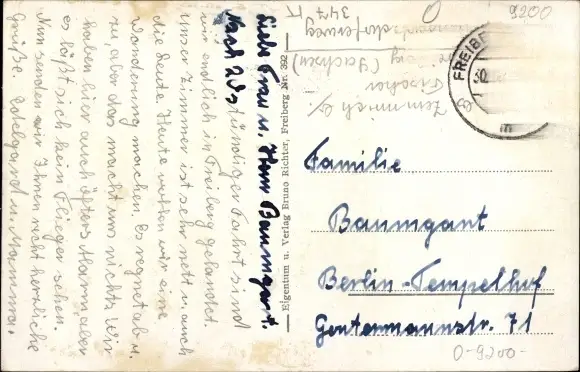 Liebe Frau u. Herr Baumgart.
Nach 20stündiger Fahrt sind
wir endlich in Freiberg gelandet.
Unser Zimmer ist sehr nett u. auch
die Leute. Heute wollen wir eine
Wanderung machen. Es regnet ab u.
zu, aber das macht uns nichts. Wir
haben hier auch öfters Alarm, aber
es läßt sich kein Flieger sehen.
Nun senden wir Ihnen recht herzliche
Grüße Edelgard u. Mamma.
Eigentum u. Verlag Bruno Richter, Freiberg Nr. 392
FREIBE
Familie
Baumgart
Berlin-Tempelhof
Gontermannstr. 71
(Sachsen)
Fischer
34/I
9200
0-9200-